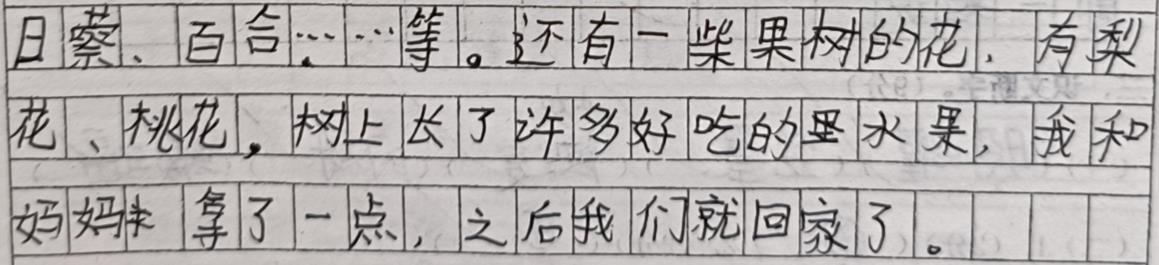 日蔡、百合……等。还有一柴果树的花，有梨
花、桃花，树上长了许多好吃的里水果，我和
妈妈拿了一点，之后我们就回家了。